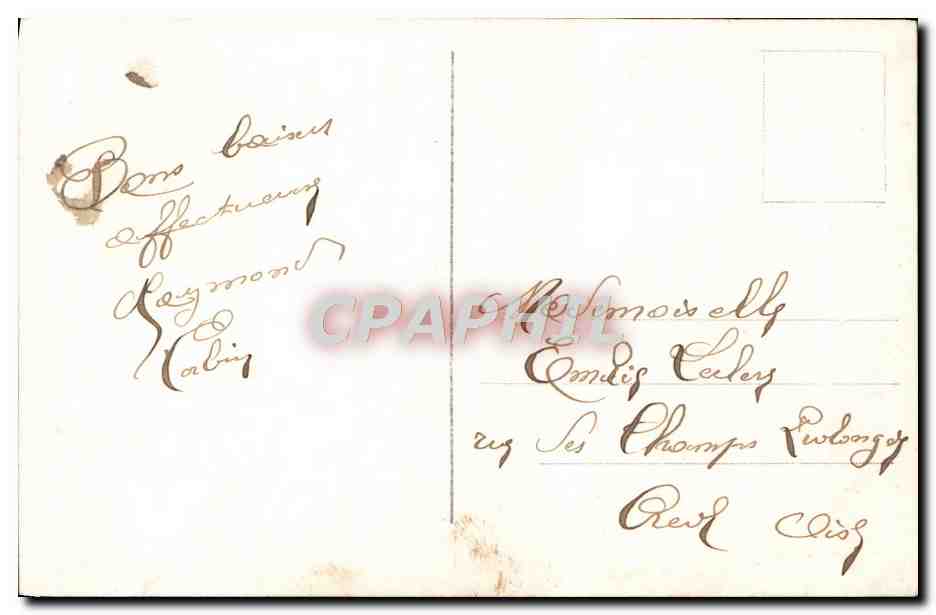 Bons baisers
affectueux
Raymond
CPAPHIL
Mademoiselle
Emélie Leclerc
rue des Champs Prolongée
Creil Oise